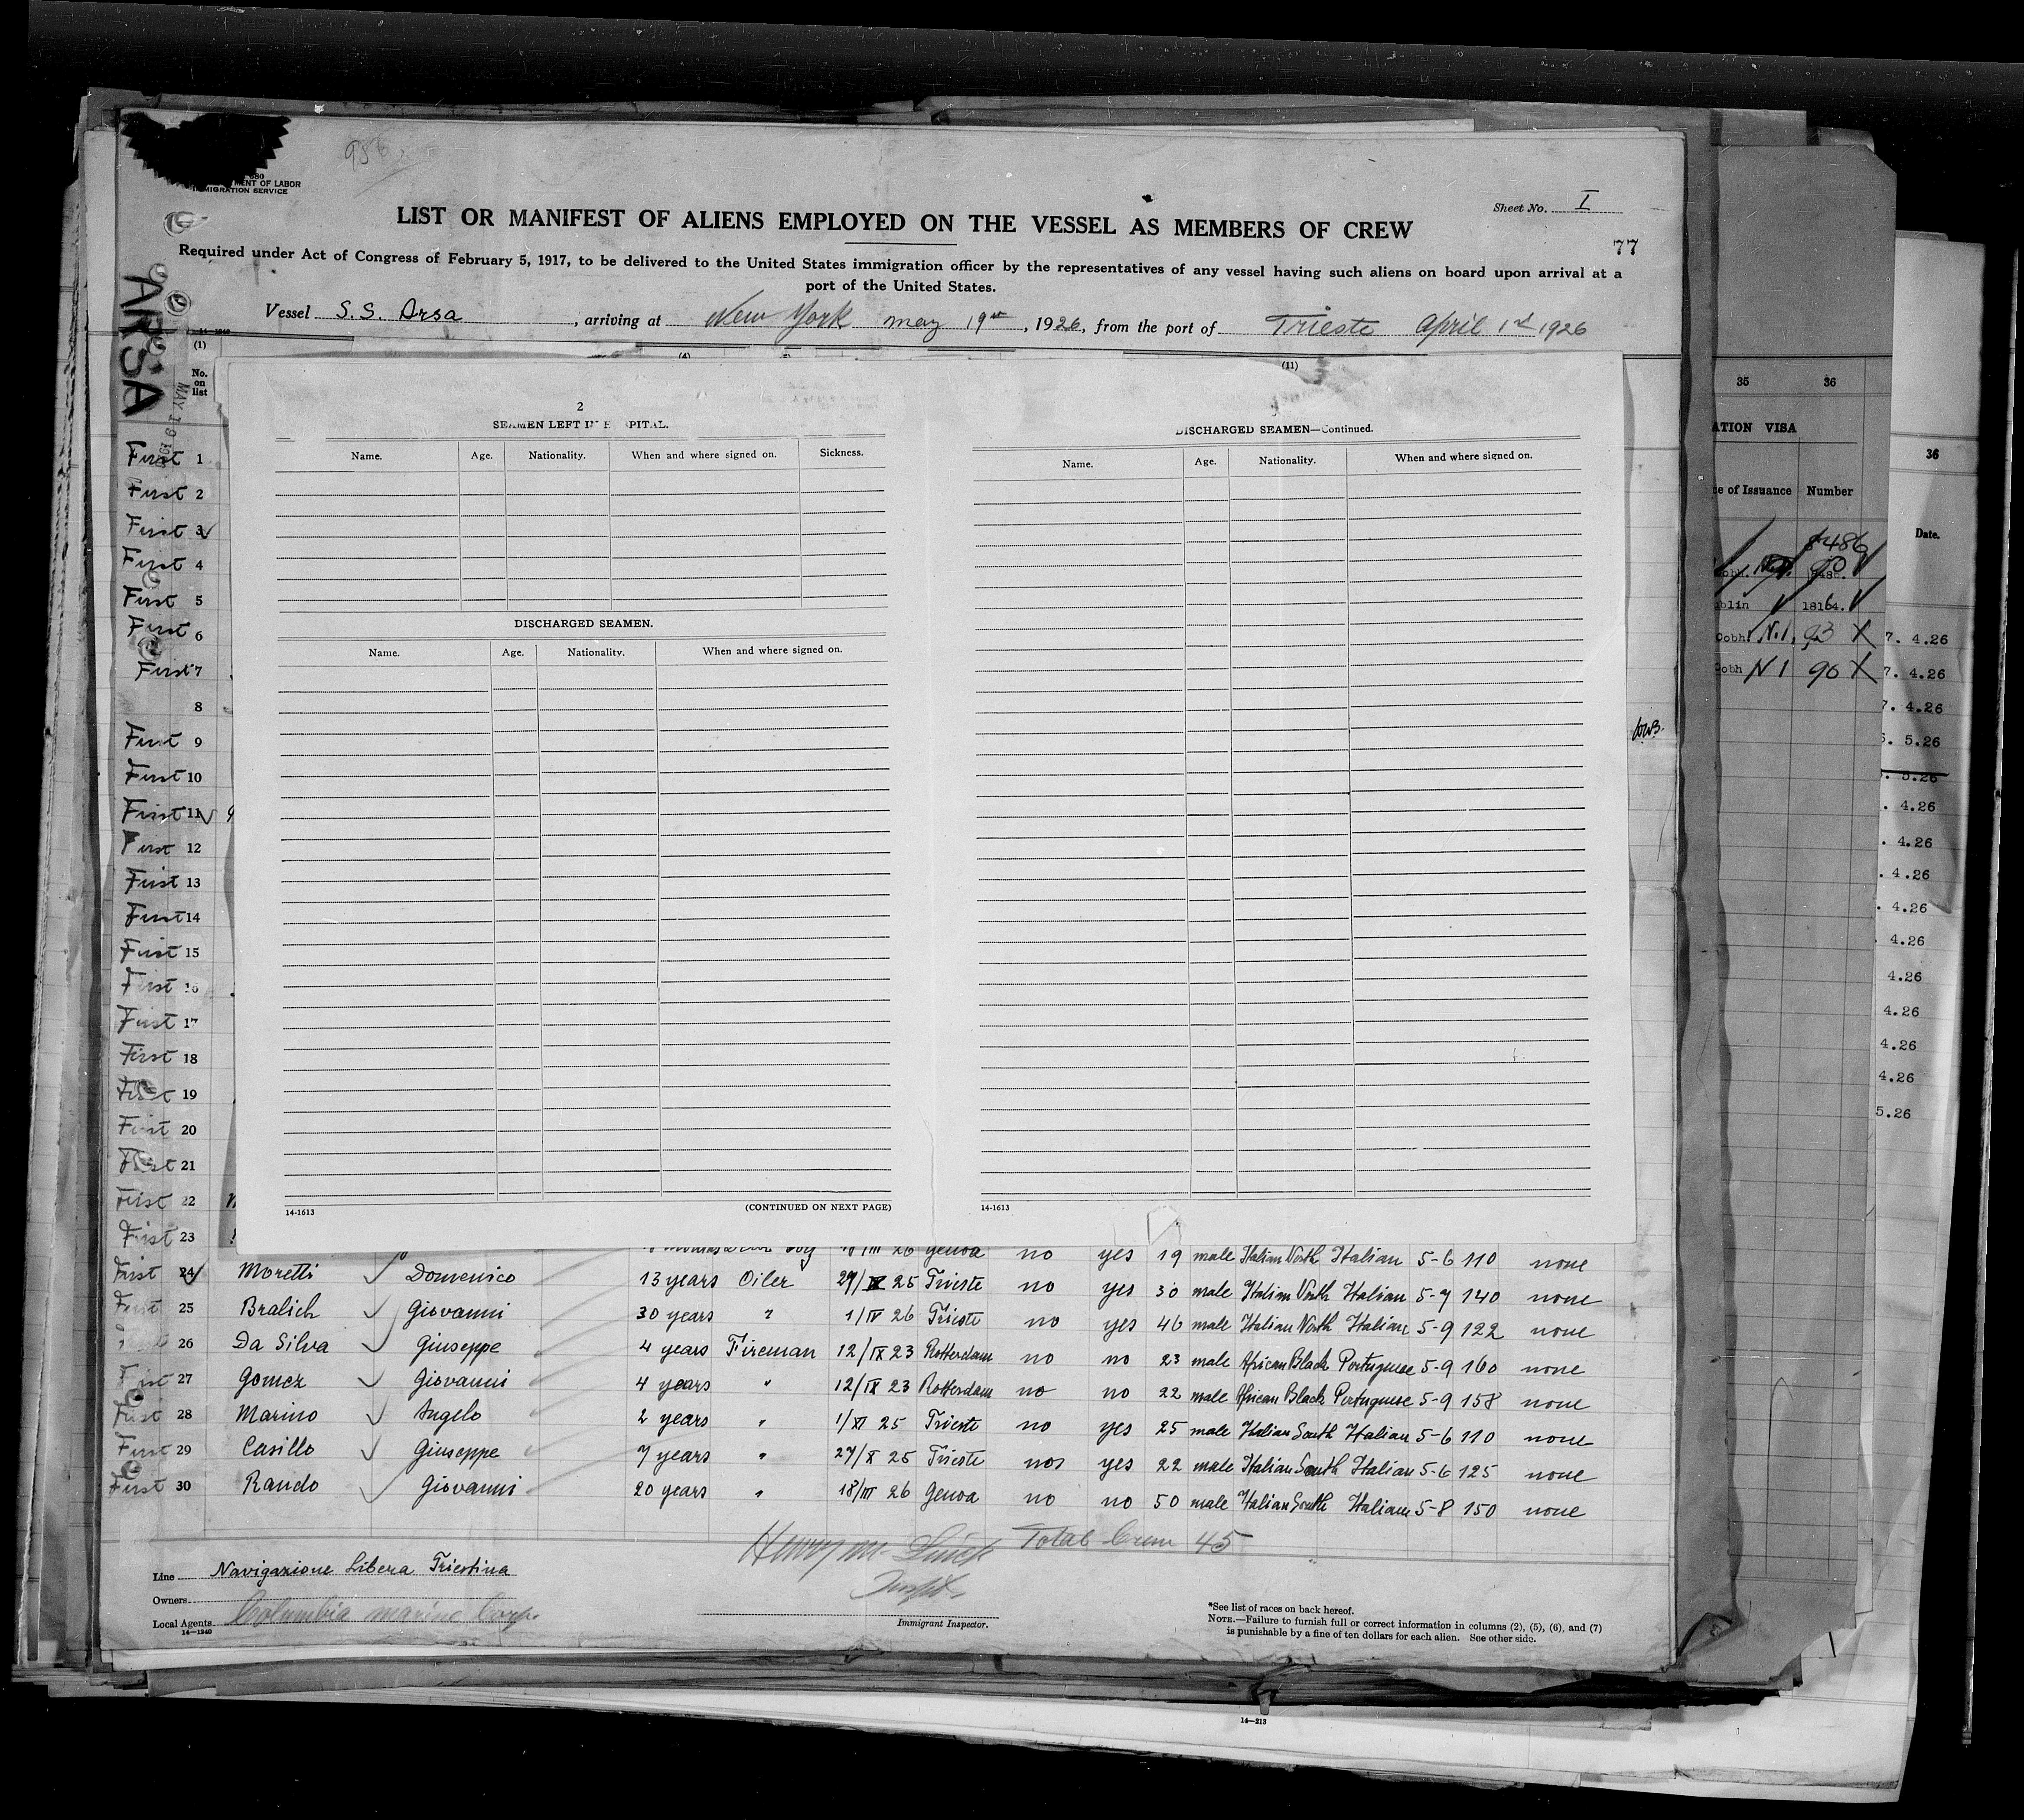 956
680
MENT OF LABOR
IMMIGRATION SERVICE
Sheet No. I
LIST OR MANIFEST OF ALIENS EMPLOYED ON THE VESSEL AS MEMBERS OF CREW
77
Required under Act of Congress of February 5, 1917, to be delivered to the United States immigration officer by the representatives of any vessel having such aliens on board upon arrival at a
port of the United States.
Vessel S.S. Arsa, arriving at New York May 19, 1926, from the port of Trieste April 1st 1926
14-1940
ARSA
(1) (4) (11)
No. on list
2
SEAMEN LEFT IN PITAL.
Name. Age. Nationality. When and where signed on. Sickness.
DISCHARGED SEAMEN.
Name. Age. Nationality. When and where signed on.
14-1613 (CONTINUED ON NEXT PAGE)
DISCHARGED SEAMEN—Continued.
Name. Age. Nationality. When and where signed on.
14-1613
First 1
First 2
First 3
First 4
First 5
First 6
First 7
8
First 9
First 10
First 11
First 12
First 13
First 14
First 15
First 16
First 17
First 18
First 19
First 20
First 21
First 22
First 23 26 Genoa no yes 19 male Italian North Italian 5-6 110 none
First 24 Moretti Domenico 13 years Oiler 25 Trieste no yes 30 male Italian North Italian 5-7 140 none
First 25 Bralich Giovanni 30 years " 1/IV 26 Trieste no yes 46 male Italian North Italian 5-9 122 none
26 Da Silva Giuseppe 4 years Fireman 12/IX 23 Rotterdam no no 23 male African Black Portuguese 5-9 160 none
First 27 Gomez Giovanni 4 years " 12/IX 23 Rotterdam no no 22 male African Black Portuguese 5-9 158 none
First 28 Marino Angelo 2 years " 1/XI 25 Trieste no yes 25 male Italian South Italian 5-6 110 none
First 29 Casillo Giuseppe 7 years " 27/X 25 Trieste no yes 22 male Italian South Italian 5-6 125 none
First 30 Rando Giovanni 20 years " 18/III 26 Genoa no no 50 male Italian South Italian 5-8 150 none
Total Crew 45
Line Navigazione Libera Triestina
Owners
Local Agents Columbia Marine Corp.
14-1940
Henry M.
Inspt.
Immigrant Inspector.
*See list of races on back hereof.
NOTE.—Failure to furnish full or correct information in columns (2), (5), (6), and (7)
is punishable by a fine of ten dollars for each alien. See other side.
14-213
35 36
ATION VISA
ce of Issuance Number
8486
obh. 90
blin 18164.
Cobh N.1, 93
Cobh N 1 90
36
Date.
7. 4.26
7. 4.26
7. 4.26
5.26
5.26
. 4.26
. 4.26
. 4.26
. 4.26
4.26
4.26
4.26
4.26
4.26
5.26